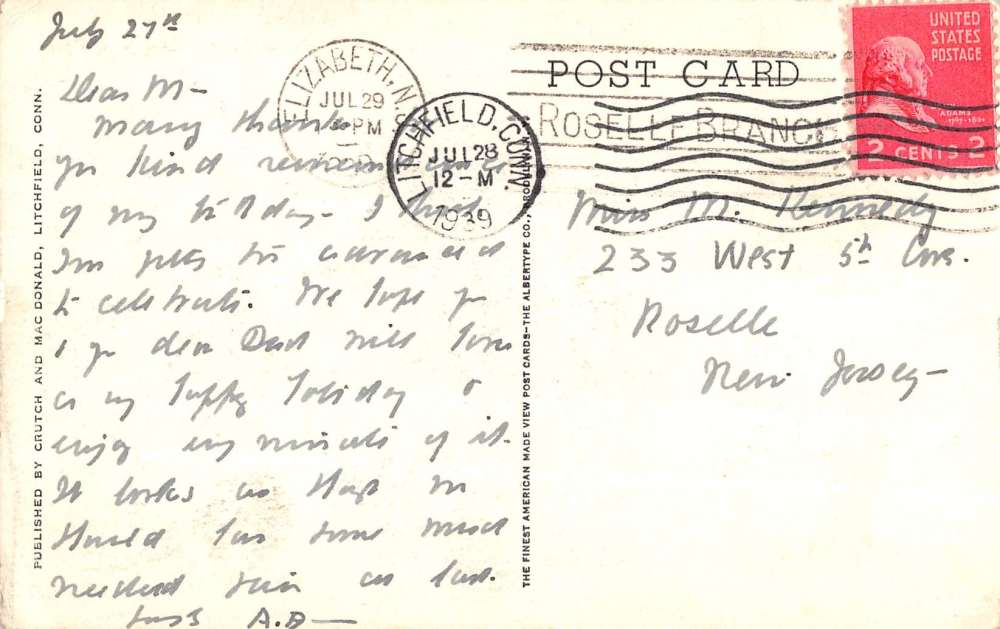 July 27th
Dear M-
Many thanks
yr kind
of my birthday - I
to celebrate. We hope yr
& yr dear Dad will have
a happy holiday &
enjoy minute of it.
It looks as though we
should have some much
needed rain at last.
A.B-
PUBLISHED BY CRUTCH AND MAC DONALD, LITCHFIELD, CONN.
THE FINEST AMERICAN MADE VIEW POST CARDS-THE ALBERTYPE CO.,
POST CARD
ELIZABETH, N.
JUL 29
PM
LITCHFIELD, CONN.
JUL 28
12 - M
1939
ROSELLE BRANCH
UNITED
STATES
POSTAGE
ADAMS
2 CENTS 2
Miss M. Kennedy
233 West 5th Ave.
Roselle
New Jersey-